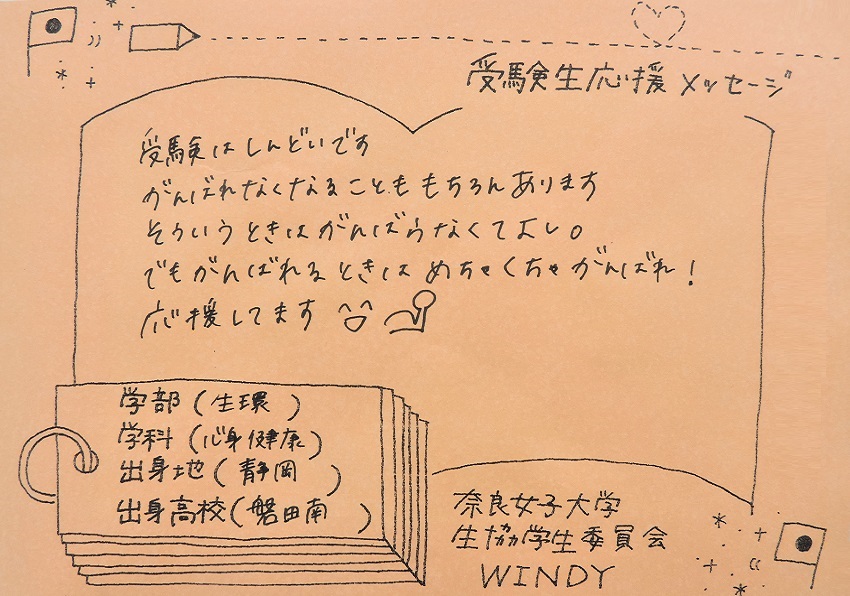 受験生応援メッセージ
受験はしんどいです
がんばれなくなることももちろんあります
そういうときはがんばらなくてよし。
でもがんばれるときはめちゃくちゃがんばれ!
応援してます
学部(生環)
学科(心身健康)
出身地(静岡)
出身高校(磐田南)
奈良女子大学
生協学生委員会
WINDY